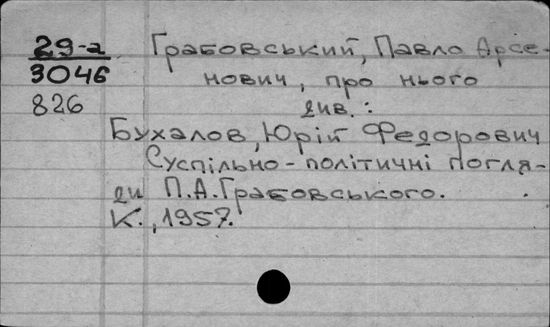 29-а Грабовський, Павло Арсе-
3046 нович, про нього
826 див.:
Бухалов, Юрій Федорович
Суспільно-політичні погля-
ди П.А.Грабовського.
К., 1957.